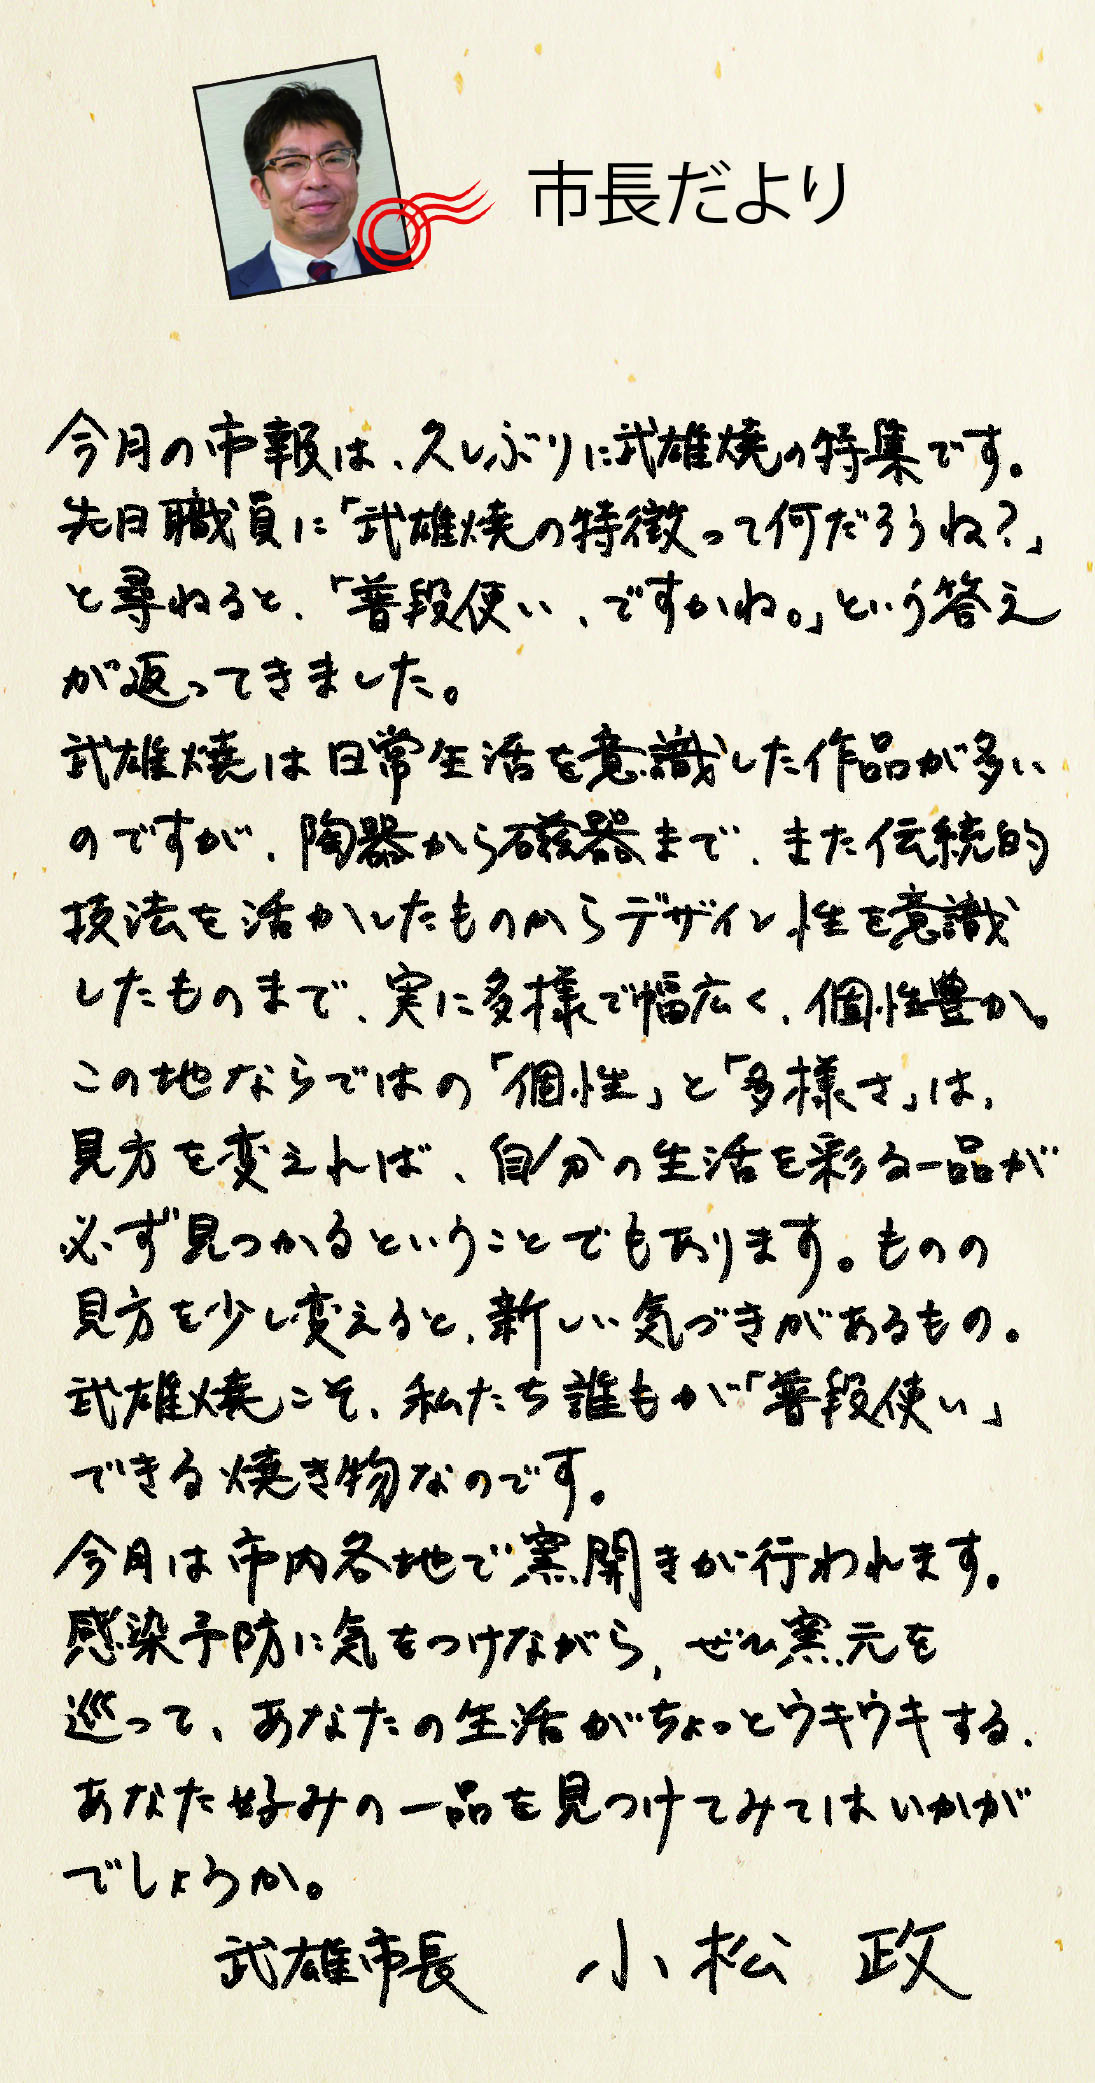 市長だより
今月の市報は、久しぶりに武雄焼の特集です。
先日職員に「武雄焼の特徴って何だろうね？」
と尋ねると、「普段使い、ですかね。」という答え
が返ってきました。
武雄焼は日常生活を意識した作品が多い
のですが、陶器から磁器まで、また伝統的
技法を活かしたものからデザイン性を意識
したものまで、実に多様で幅広く、個性豊か。
この地ならではの「個性」と「多様さ」は、
見方を変えれば、自分の生活を彩る一品が
必ず見つかるということでもあります。ものの
見方を少し変えると、新しい気づきがあるもの。
武雄焼こそ、私たち誰もが「普段使い」
できる焼き物なのです。
今月は市内各地で窯開きが行われます。
感染予防に気をつけながら、ぜひ窯元を
巡って、あなたの生活がちょっとウキウキする、
あなた好みの一品を見つけてみてはいかが
でしょうか。
武雄市長 小松 政